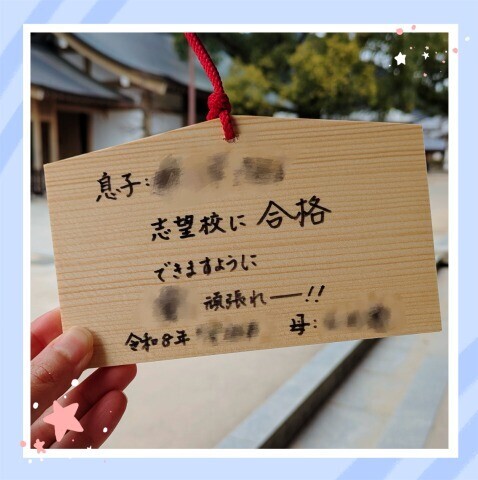 息子:
志望校に合格
できますように
頑張れー!!
令和8年 母: